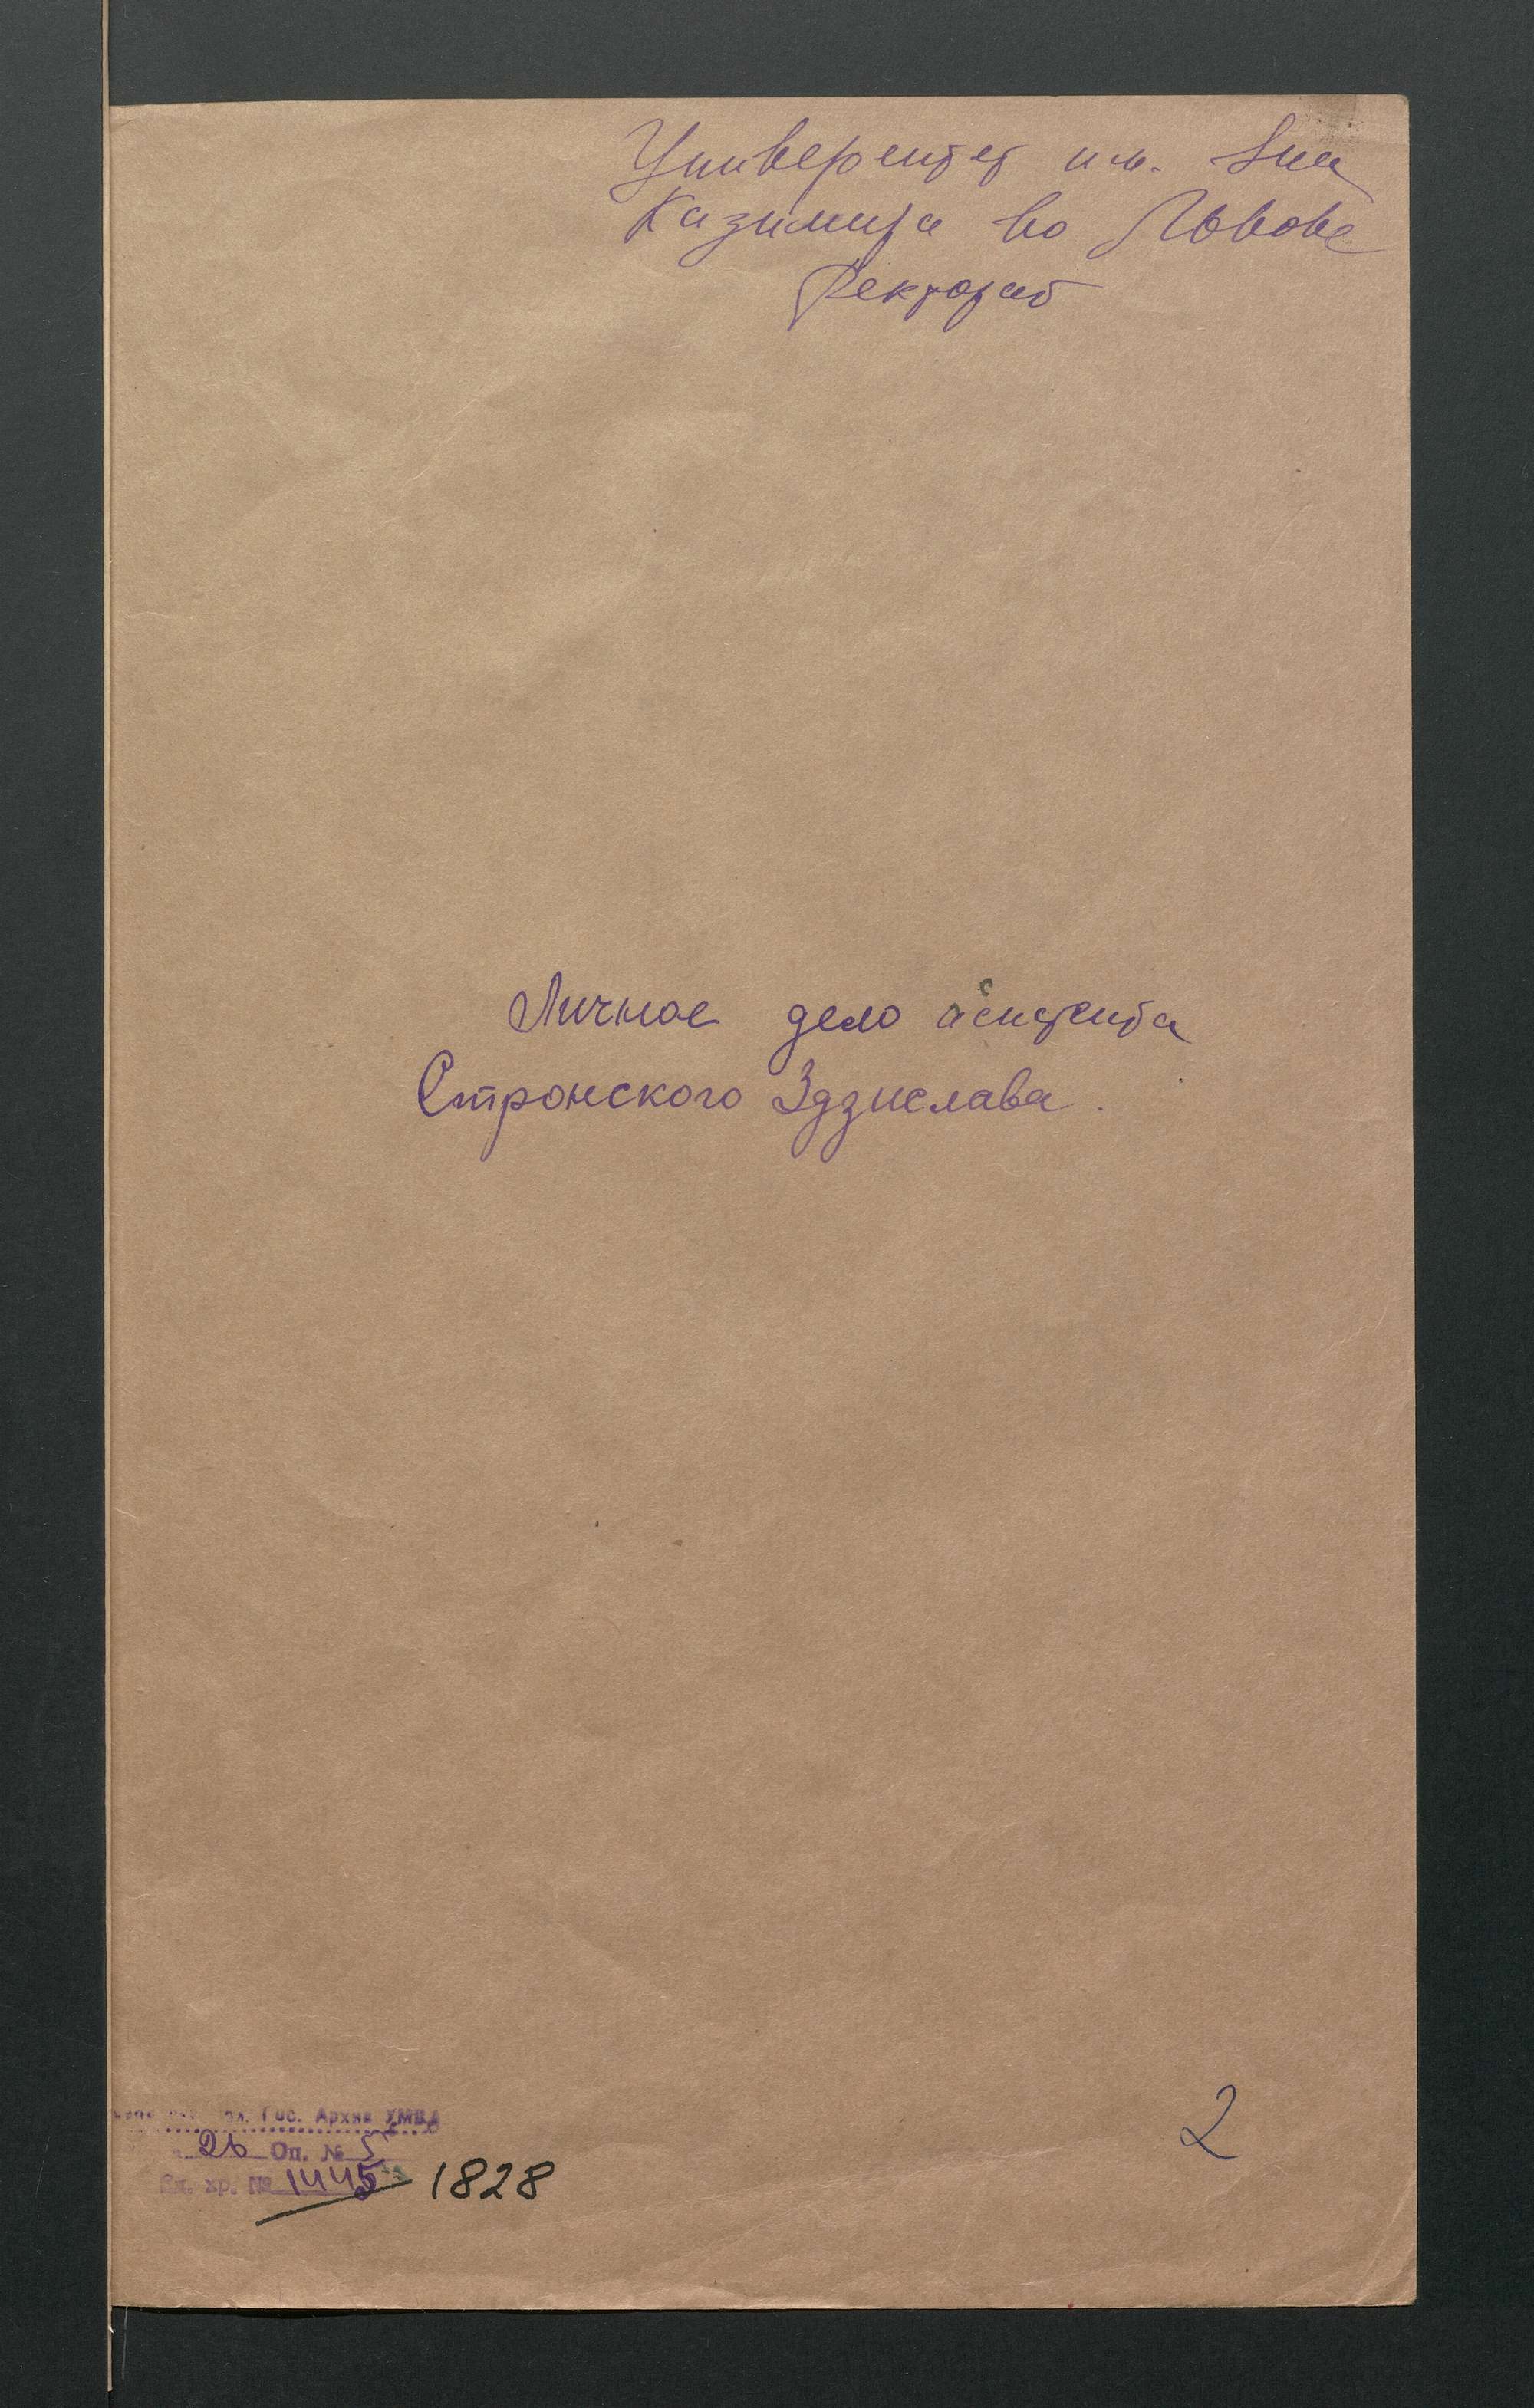 Университет им. Яна
Казимира во Львове
Ректорат
Личное дело асистента
Стронского Здзислава.
Гос. Архив УМВД
26 Оп. № 5
Ед. хр. № 1445 1828
2